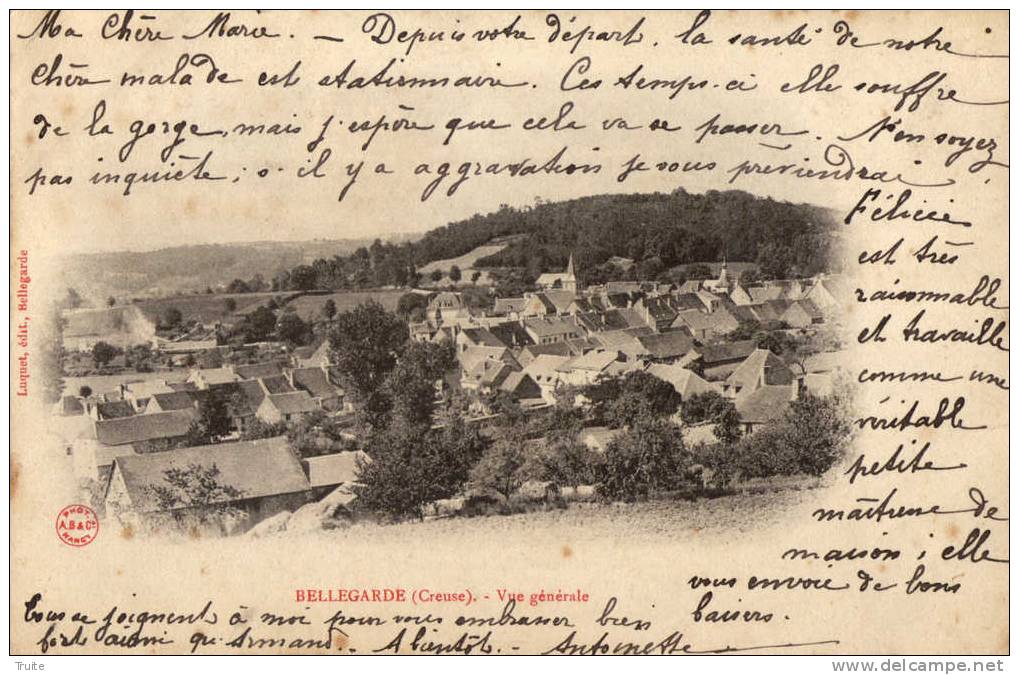 Ma Chère Marie. — Depuis votre départ, la santé de notre
chère malade est stationnaire. Ces temps-ci elle souffre
de la gorge, mais j'espère que cela va se passer. N'en soyez
pas inquiète ; s'il y a aggravation je vous préviendrai.
Félicie
est très
raisonnable
et travaille
comme une
véritable
petite
maîtresse de
maison ; elle
vous envoie de bons
baisers.
Tous se joignent à moi pour vous embrasser bien
fort ainsi qu'Armand. - A bientôt. - Antoinette
Luquet, édit., Bellegarde
PHOT.
A.B & Cie
NANCY
BELLEGARDE (Creuse). - Vue générale
Truite
©delcampe.net